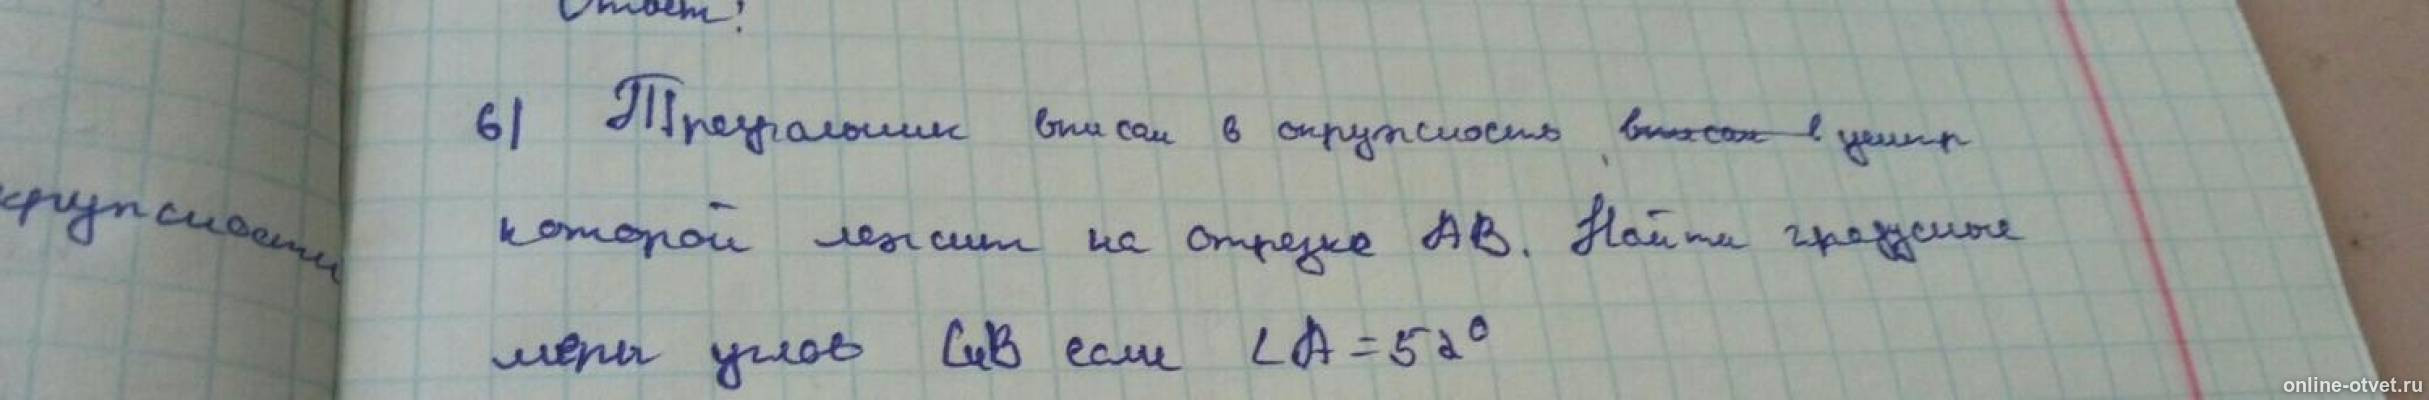 Ответ:
6) Треугольник вписан в окружность, вписан в центр
которой лежит на отрезке АВ. Найти градусные
окружности
меры углов С и В если ∠A = 52°
online-otvet.ru